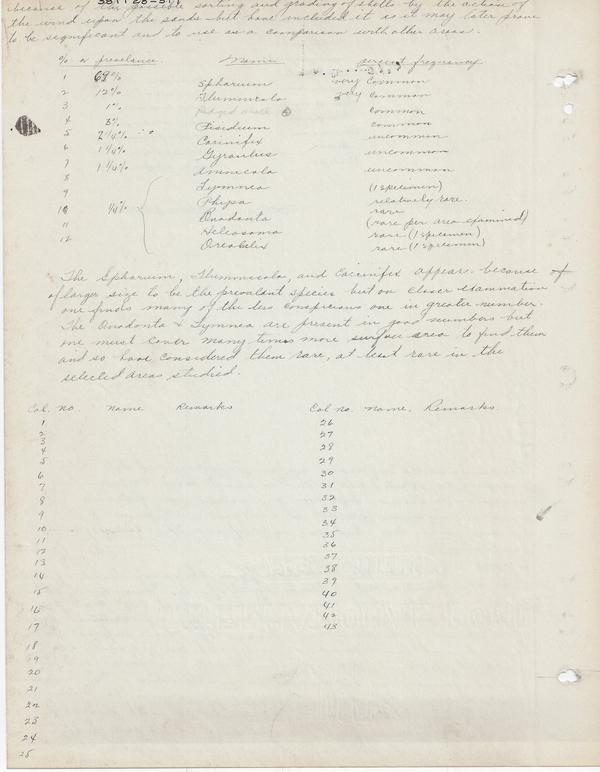 because of the possible sorting and grading of shells by the action of
the wind upon the sands but have included it as it may later prove
to be significant and to use as a comparison with other areas.
% or prevelance Name percent frequency
1 69% Sphaerium very common
2 12% Flumnicola very common
3 1% common
4 3% Pisidium common
5 2 1/4% Carinifex uncommon
6 1 1/4% Gyraulus uncommon
7 1 1/4% Amnicola uncommon
8 Lymnea (1 specimen)
9 Physa relatively rare
10 1/4% Anodonta rare
11 Heliosoma (rare per area examined)
12 Oreohelix rare (1 specimen)
rare (1 specimen)
The Sphaerium, Flumnicola, and Carinifex appear because
of larger size to be the prevalent species but on closer examination
one finds many of the less conspicious one in greater number.
The Anodonta & Lymnea are present in good numbers but
one must cover many times more surface area to find them
and so have considered them rare, at least rare in the
selected areas studied.
Col. no. name Remarks Col no. name. Remarks
1 26
2 27
3 28
4 29
5 30
6 31
7 32
8 33
9 34
10 35
11 36
12 37
13 38
14 39
15 40
16 41
17 42
18 43
19
20
21
22
23
24
25